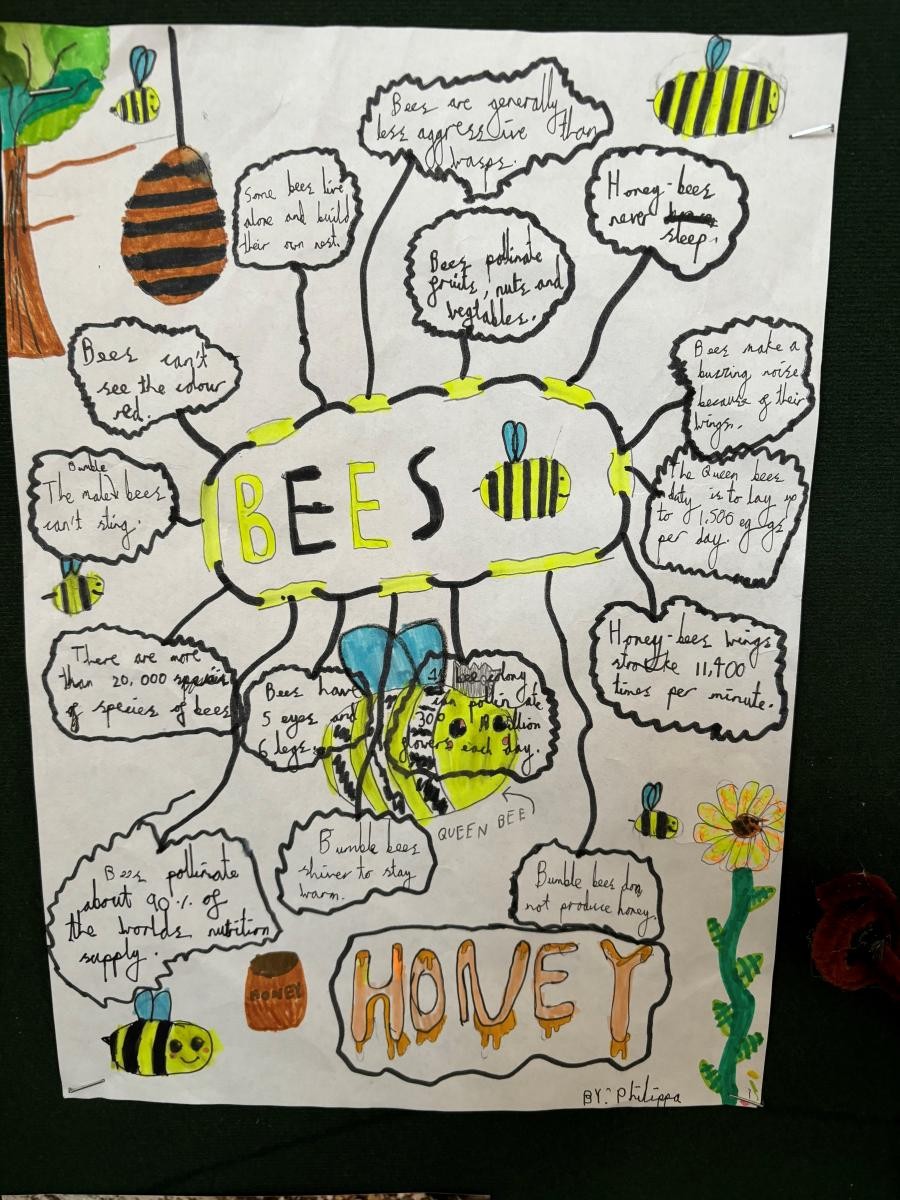 Bees are generally
less aggressive than
wasps.
Some bees live
alone and build
their own nest.
Honey-bees
never
sleep.
Bees pollinate
fruits, nuts and
vegtables.
Bees can't
see the colour
red.
Bees make a
buzzing noise
because of their
wings.
Bumble
The male bees
can't sting.
BEES
The Queen bees
duty is to lay up
to 1,500 eggs
per day.
There are more
than 20,000
of species of bees
Bees have
5 eyes and
6 legs.
bee colony
can pollinate
300 million
flowers each day.
Honey-bees wings
stroke 11,400
times per minute.
QUEEN BEE
Bees pollinate
about 90% of
the worlds nutrition
supply.
Bumble bees
shiver to stay
warm.
Bumble bees do
not produce honey.
HONEY
HONEY
BY: Philippa